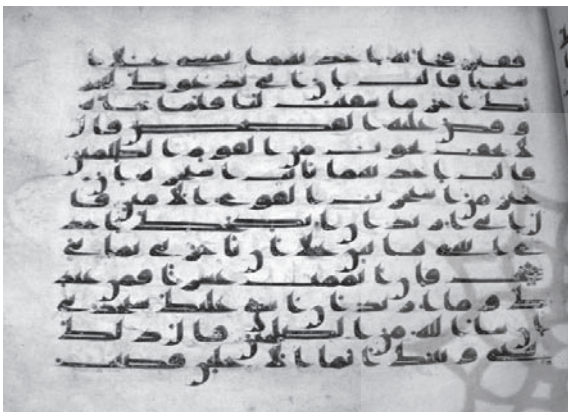 فقير فجاته احديهما تمشى على ا
ستحيا قالت ان ابى يدعوك ليجز
يك اجر ما سقيت لنا فلما جاه
و قص عليه القصص قال
لا تخف نجوت من القوم الظلمين
قالت احديهما يابت استجره ان
خير من استجرت القوى الامين قا
ل انى اريد ان انكحك احد
ى ابنتى هتين على ان تاجرنى ثمنى
حجج فان اتممت عشرا فمن عند
ك و ما اريد ان اشق عليك ستجدنى
ان شا الله من الصلحين قال ذلك
بينى و بينك ايما الاجلين قضيت